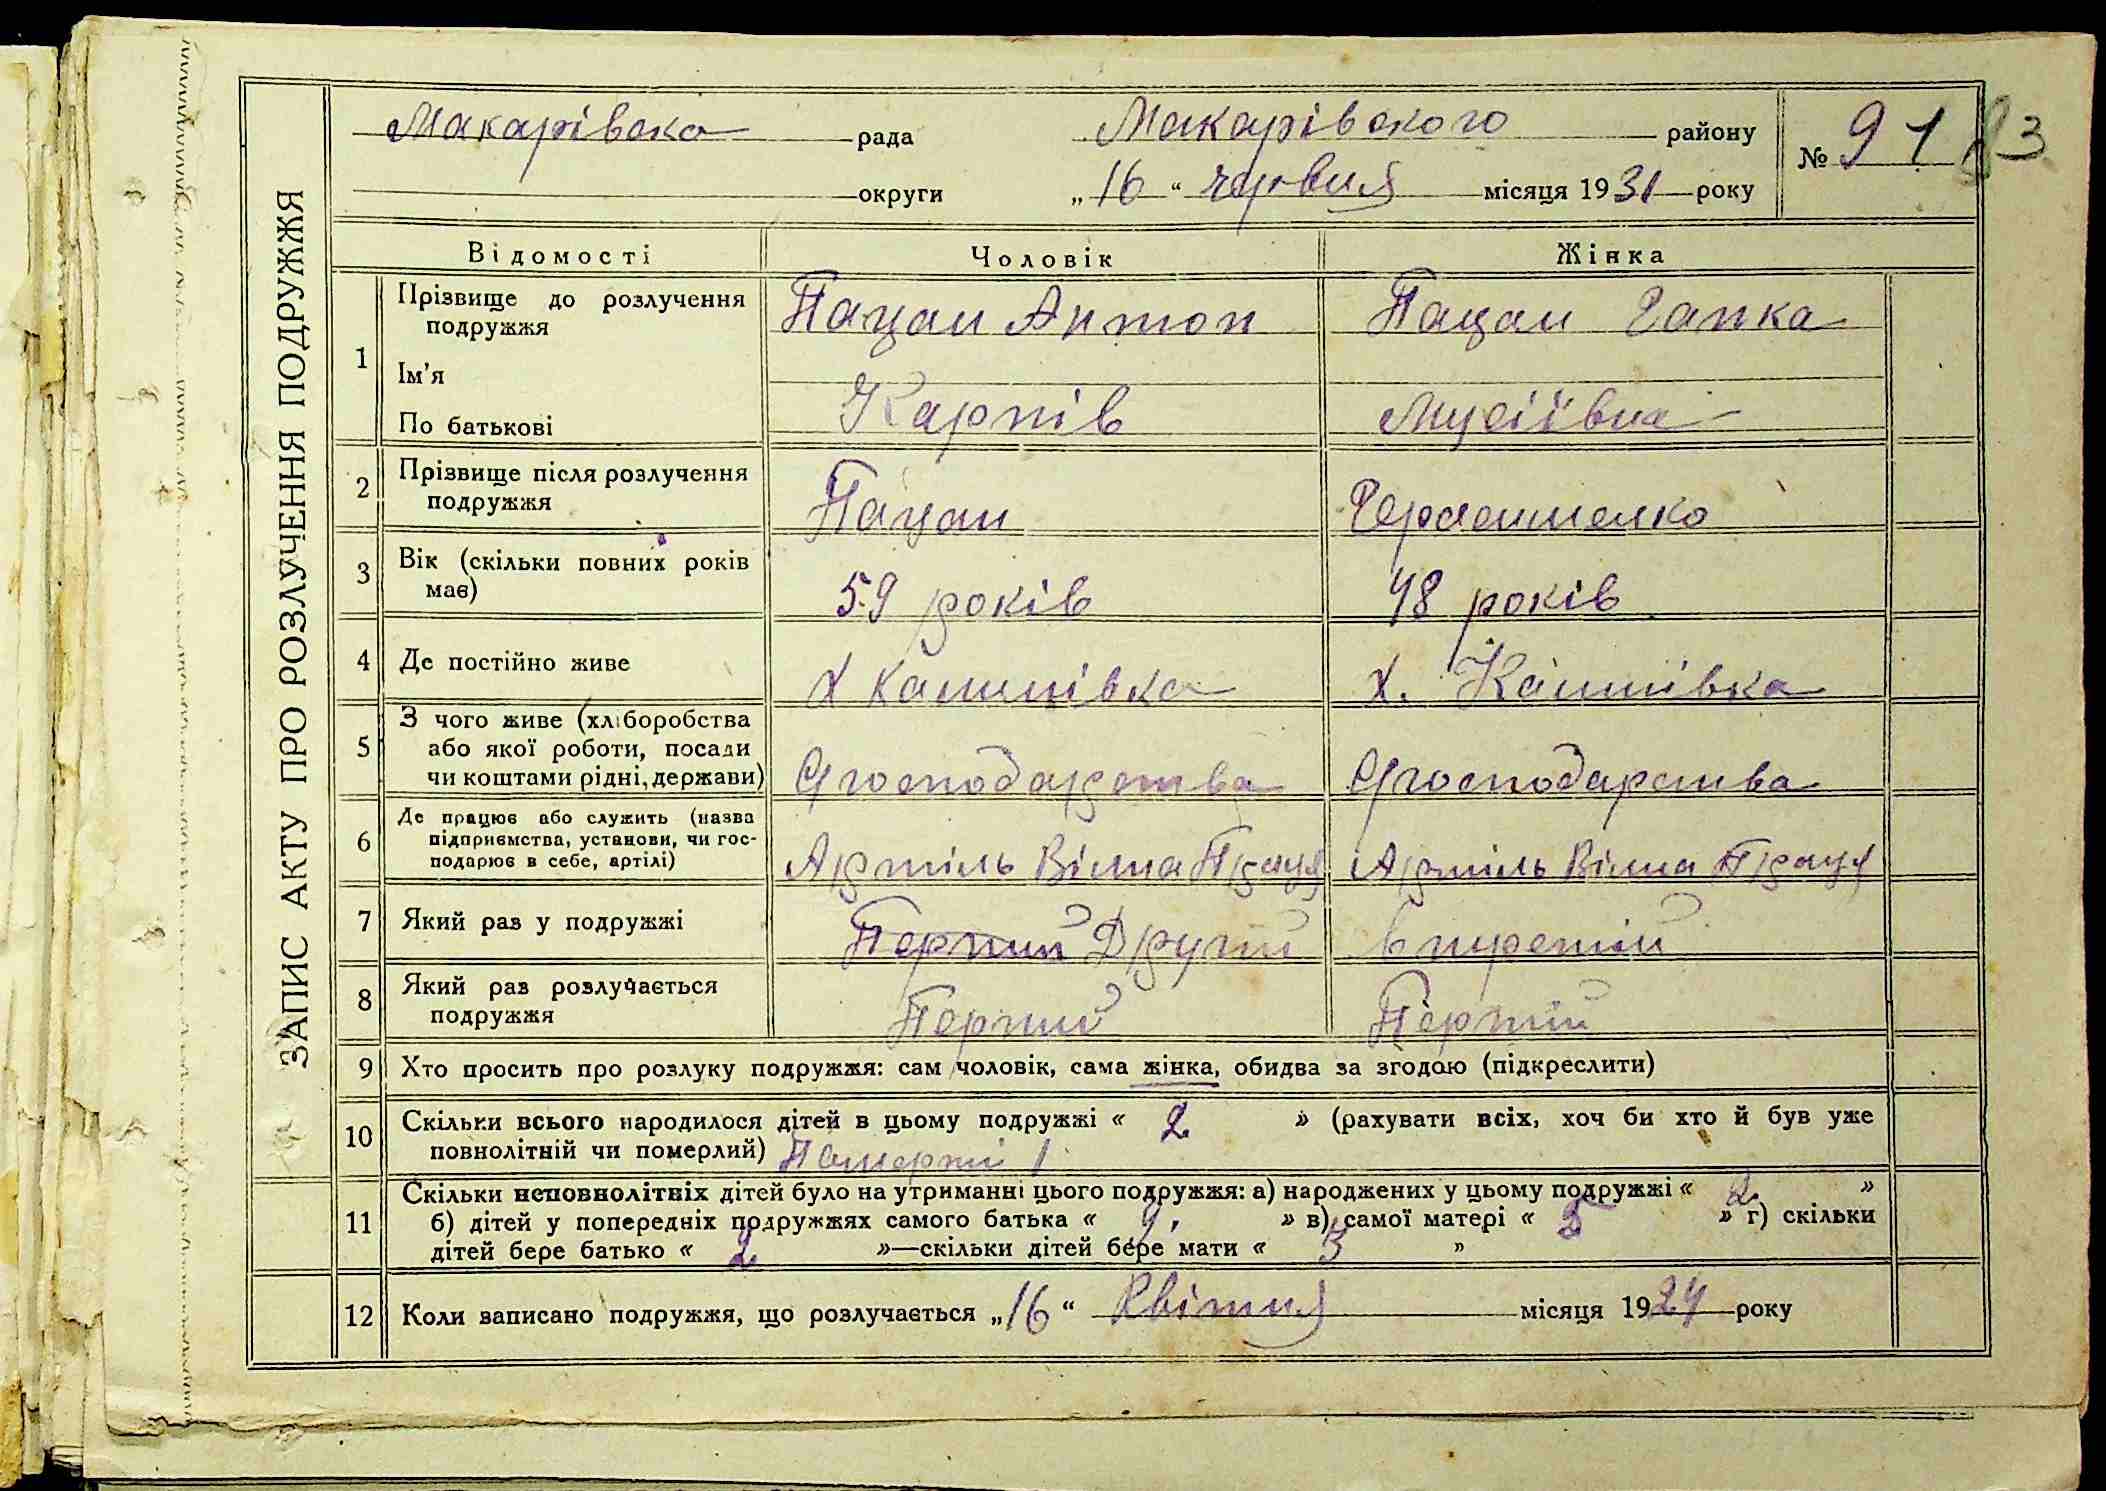 ЗАПИС АКТУ ПРО РОЗЛУЧЕННЯ ПОДРУЖЖЯ
Макарівска рада Макарівского району № 91
округи „16“ червня місяця 1931 року
Відомості Чоловік Жінка
1 Прізвище до розлучення подружжя Пацан Антон Пацан Гапка
Ім’я
По батькові Карпів Мусіївна
2 Прізвище після розлучення подружжя Пацан
3 Вік (скільки повних років має) 59 років 48 років
4 Де постійно живе х х.
5 З чого живе (хліборобства або якої роботи, посади чи коштами рідні, держави) Сгосподарства Сгосподарства
6 Де працює або служить (назва підприємства, установи, чи господарює в себе, артілі) Артіль Вілна Праця Артіль Вілна Праця
7 Який раз у подружжі Перший Другий
8 Який раз розлучається подружжя Перший Перший
9 Хто просить про розлуку подружжя: сам чоловік, сама жінка, обидва за згодою (підкреслити)
10 Скільки всього народилося дітей в цьому подружжі « 2 » (рахувати всіх, хоч би хто й був уже
повнолітній чи померлий) 1
11 Скільки неповнолітніх дітей було на утриманні цього подружжя: а) народжених у цьому подружжі « 2 »
б) дітей у попередніх подружжях самого батька « » в) самої матері « » г) скільки
дітей бере батько « 2 »—скільки дітей бере мати « »
12 Коли записано подружжя, що розлучається „16“ Квітня місяця 1924 року